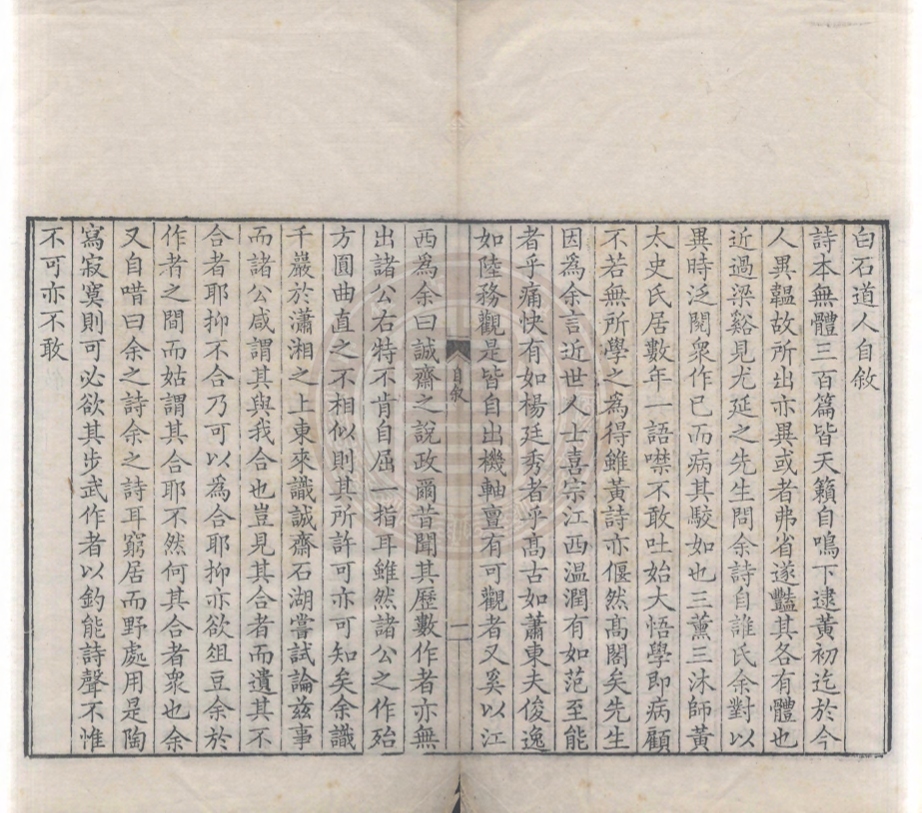 白石道人自敘
詩本無體三百篇皆天籟自鳴下逮黃初迄於今
人異韞故所出亦異或者弗省遂豔其各有體也
近過梁谿見尤延之先生問余詩自誰氏余對以
異時泛閱衆作已而病其駁如也三薰三沐師黃
太史氏居數年一語噤不敢吐始大悟學即病顧
不若無所學之為得雖黃詩亦偃然高閣矣先生
因為余言近世人士喜宗江西溫潤有如范至能
者乎痛快有如楊廷秀者乎高古如蕭東夫俊逸
如陸務觀是皆自出機軸亶有可觀者又奚以江
自敘
一
西為余曰誠齋之說政爾昔聞其歷數作者亦無
出諸公右特不肯自屈一指耳雖然諸公之作殆
方圓曲直之不相似則其所許可亦可知矣余識
千巖於瀟湘之上東來識誠齋石湖嘗試論茲事
而諸公咸謂其與我合也豈見其合者而遺其不
合者耶抑不合乃可以為合耶抑亦欲俎豆余於
作者之間而姑謂其合耶不然何其合者衆也余
又自唶曰余之詩余之詩耳窮居而野處用是陶
寫寂寞則可必欲其步武作者以釣能詩聲不惟
不可亦不敢